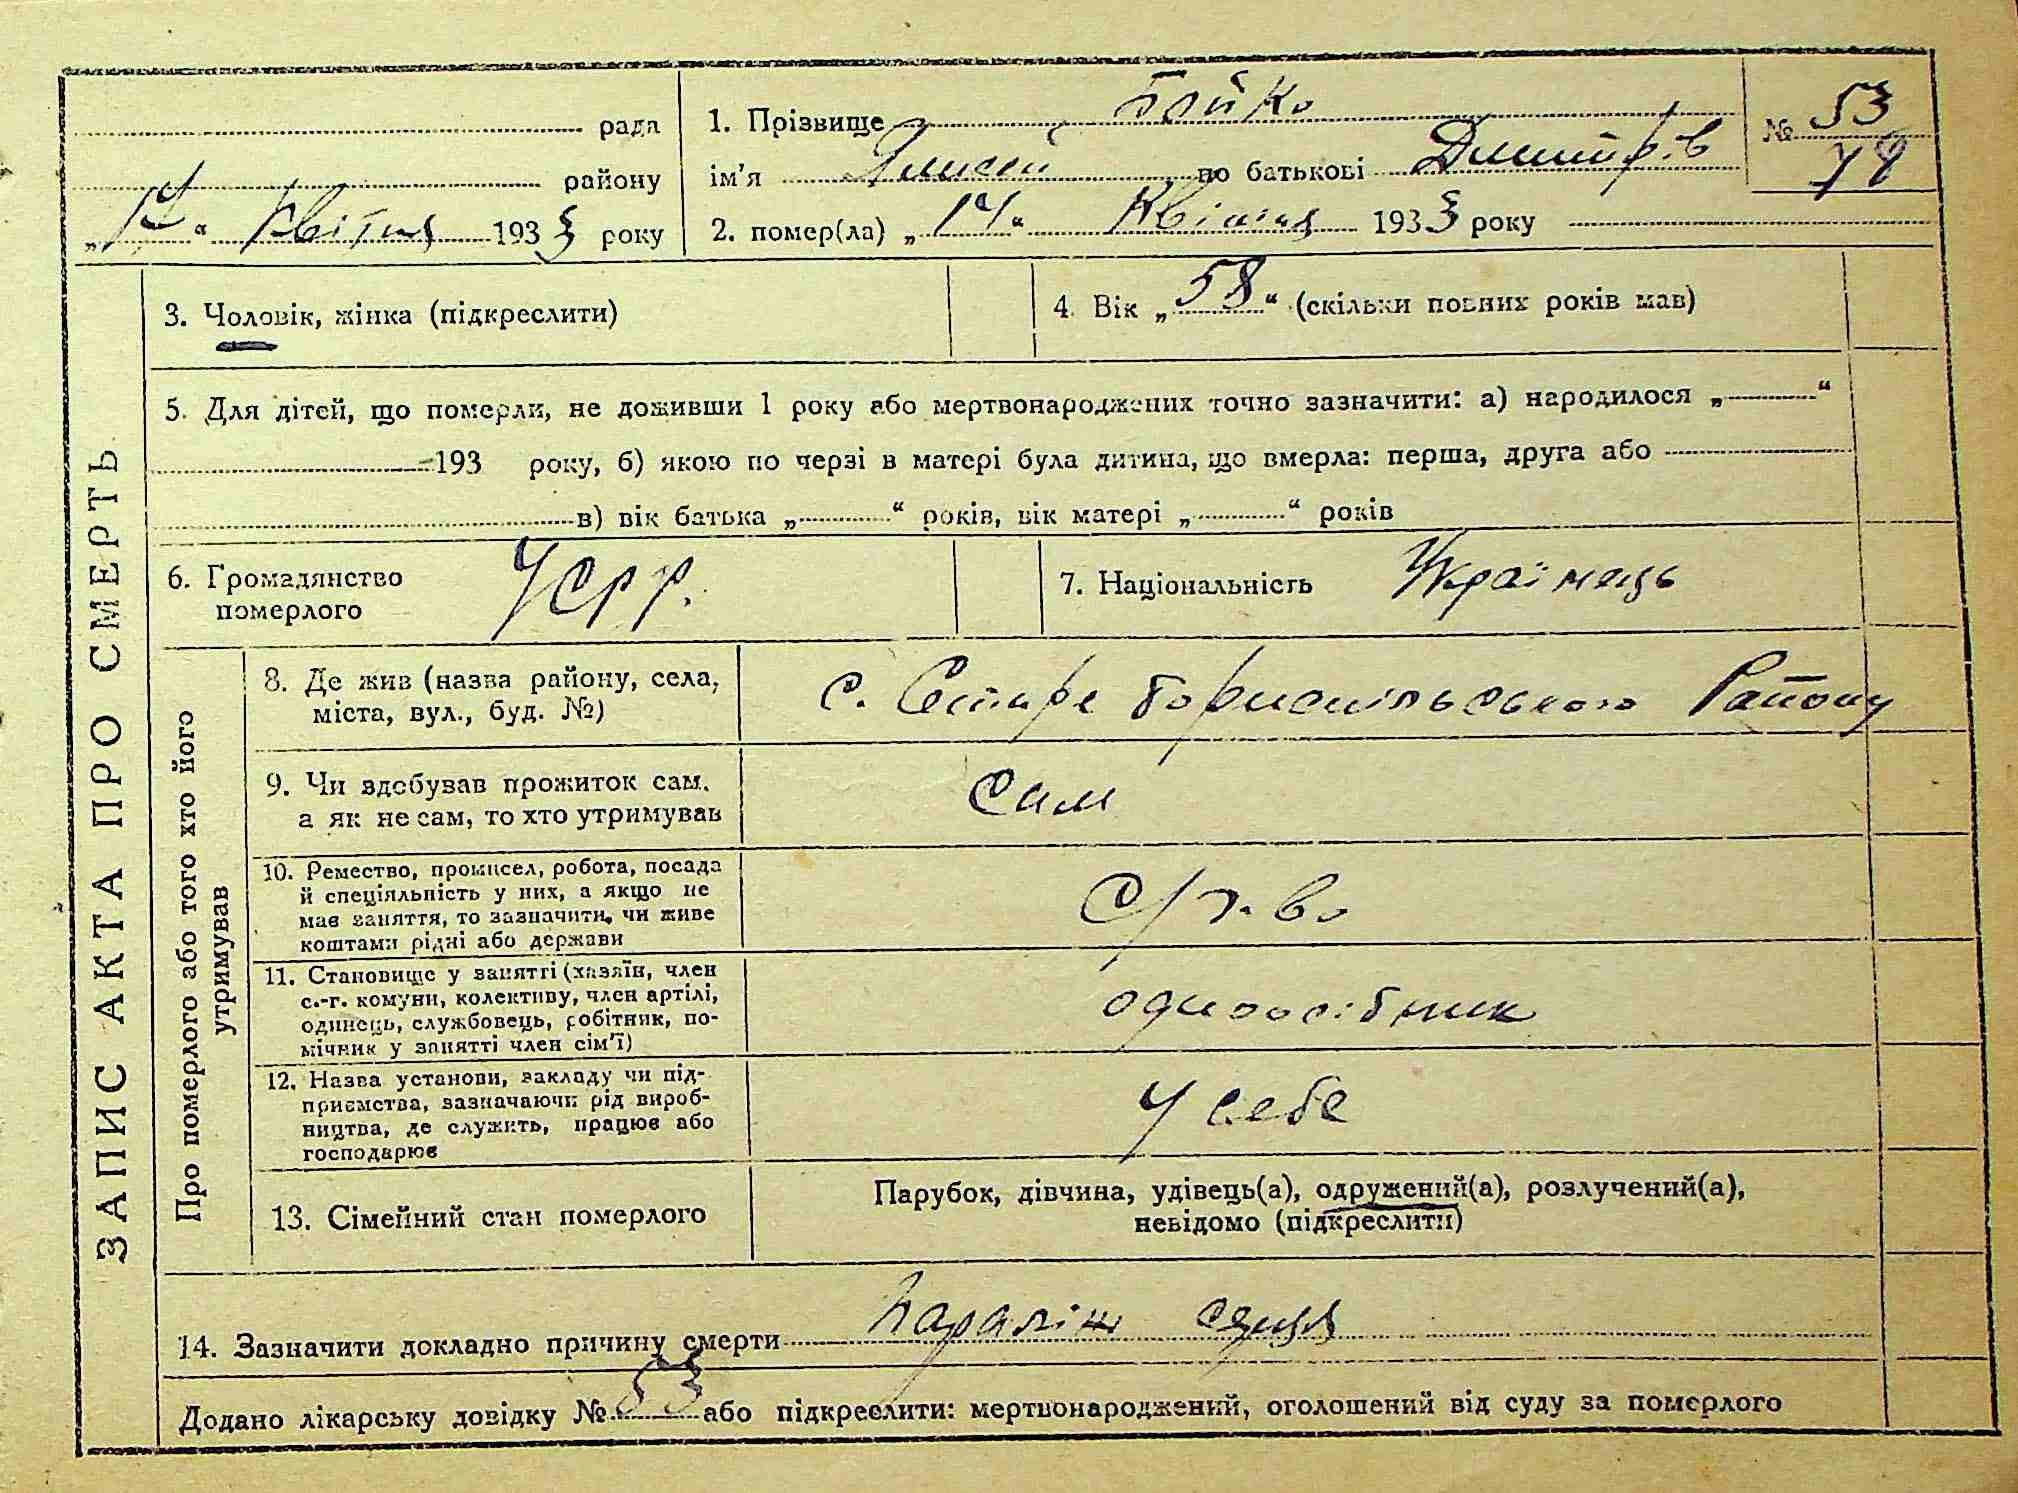 рада
району
„14“ Квітня 1933 року
1. Прізвище Бойко
ім'я Елисей по батькові Дмитрів
2. помер(ла) „14“ Квітня 1933 року
№ 53
78
ЗАПИС АКТА ПРО СМЕРТЬ
3. Чоловік, жінка (підкреслити)
4. Вік „58“ (скільки повних років мав)
5. Для дітей, що померли, не доживши 1 року або мертвонароджених точно зазначити: а) народилося „ “
193 року, б) якою по черзі в матері була дитина, що вмерла: перша, друга або
в) вік батька „ “ років, вік матері „ “ років
6. Громадянство
померлого
УСРР.
7. Національність Українець
Про померлого або того хто його
утримував
8. Де жив (назва району, села,
міста, вул., буд. №)
с. Старе Бориспільського Району
9. Чи здобував прожиток сам,
а як не сам, то хто утримував
Сам
10. Ремество, промисел, робота, посада
й спеціяльність у них, а якщо не
мав заняття, то зазначити, чи живе
коштами рідні або держави
С/г-во
11. Становище у занятті (хазяїн, член
с.-г. комуни, колективу, член артілі,
одинець, службовець, робітник, по-
мічник у занятті член сім'ї)
одноосібник
12. Назва установи, закладу чи під-
приємства, зазначаючи рід вироб-
ництва, де служить, працює або
господарює
У себе
13. Сімейний стан померлого
Парубок, дівчина, удівець(а), одружений(а), розлучений(а),
невідомо (підкреслити)
14. Зазначити докладно причину смерти Параліж серця
Додано лікарську довідку № 53 або підкреслити: мертвонароджений, оголошений від суду за померлого